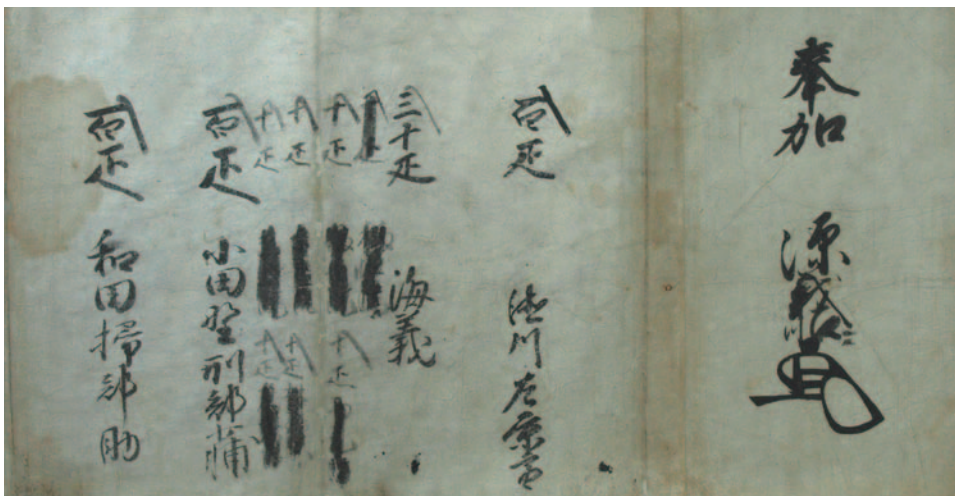 奉加 源
百疋 川左京亮
三十疋 海義
十疋 十疋
十疋 十疋
十疋 十疋
百疋 小田野刑部輔
百疋 和田掃部助